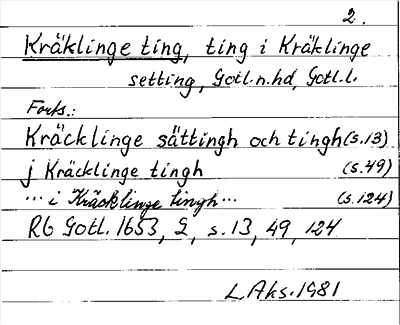 2.
Kräklinge ting, ting i Kräklinge
setting, Gotl. n. hd, Gotl. l.
Forts.:
Kräcklinge sättingh och tingh (s. 13)
j Kräcklinge tingh (s. 49)
... i Kräcklinge tingh ... (s. 124)
RG Gotl. 1653, 2, s. 13, 49, 124
L. Aks. 1981